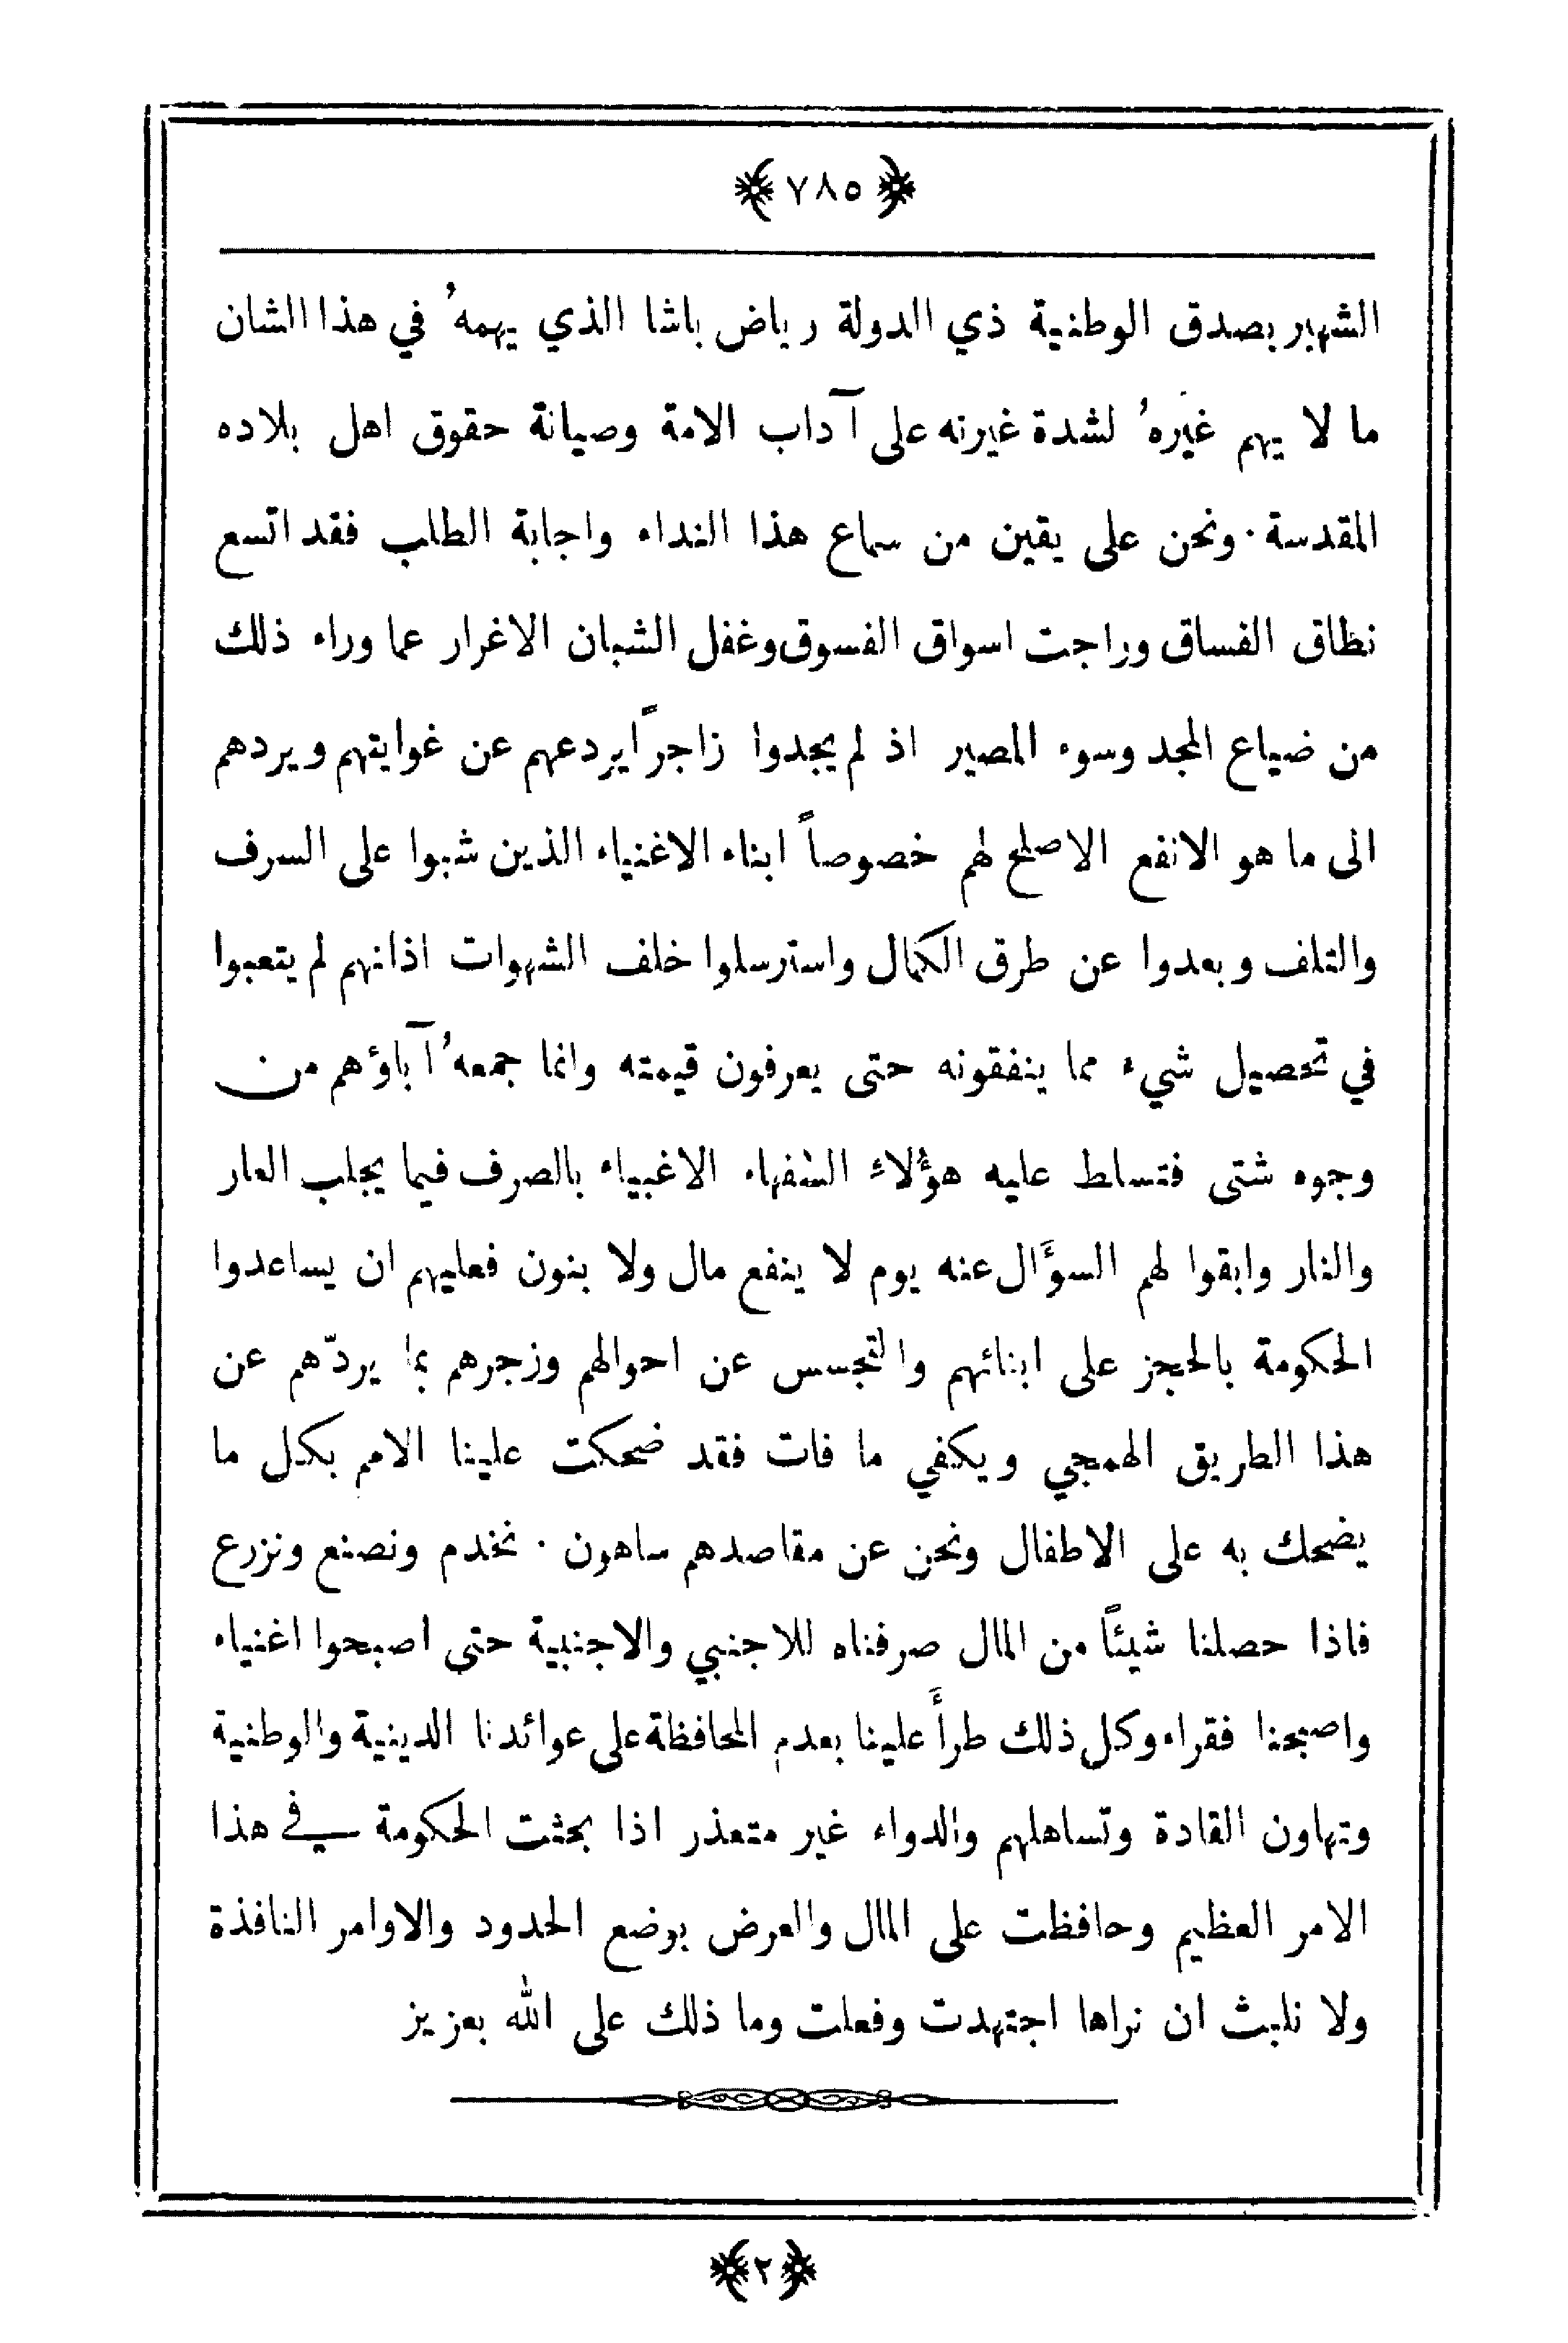 ﴿ ٧٨٥ ﴾
الشهير بصدق الوطنية ذي الدولة رياض باشا الذي يهمهُ في هذا الشان
ما لا يهم غيَرهُ لشدة غيرته على آداب الامة وصيانة حقوق اهل بلاده
المقدسة ٠ ونحن على يقين من سماع هذا النداء واجابة الطلب فقد اتسع
نطاق الفساق وراجت اسواق الفسوق وغفل الشبان الاغرار عما وراء ذلك
من ضياع المجد وسوء المصير اذ لم يجدوا زاجراً يردعهم عن غوايتهم ويردهم
الى ما هو الانفع الاصلح لهم خصوصاً ابناء الاغنياء الذين شبوا على السرف
والتلف وبعدوا عن طرق الكمال واسترسلوا خلف الشهوات اذانهم لم يتعبوا
في تحصيل شيء مما ينفقونه حتى يعرفون قيمته وانما جمعهُ آباؤهم من
وجوه شتى فتساط عليه هؤلاء السفهاء الاغبياء بالصرف فيما يجلب العار
والنار وابقوا لهم السؤَال عنه يوم لا ينفع مال ولا بنون فعليهم ان يساعدوا
الحكومة بالحجز على ابنائهم والتجسس عن احوالهم وزجرهم بما يردّهم عن
هذا الطريق الهمجي ويكفي ما فات فقد ضحكت علينا الامم بكل ما
يضحك به على الاطفال ونحن عن مقاصدهم ساهون ٠ نخدم ونصنع ونزرع
فاذا حصلنا شيئاً من المال صرفناه للاجنبي والاجنبية حتى اصبحوا اغنياء
واصبحنا فقراء وكل ذلك طرأَ علينا بعدم المحافظة على عوائدنا الدينية والوطنية
وتهاون القادة وتساهلهم والدواء غير متعذر اذا بحثت الحكومة في هذا
الامر العظيم وحافظت على المال والعرض بوضع الحدود والاوامر النافذة
ولا نلبث ان نراها اجتهدت وفعلت وما ذلك على الله بعزيز
﴿٢﴾